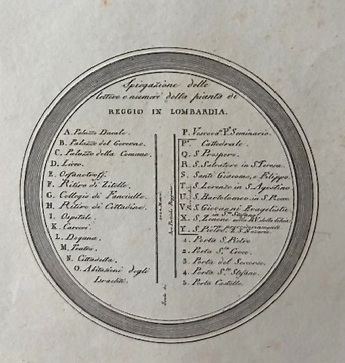 Spiegazione delle
lettere e numeri della pianta di
REGGIO IN LOMBARDIA.
A. Palazzo Ducale.
B. Palazzo del Governo.
C. Palazzo della Comune.
D. Liceo.
E. Orfanotrofj.
F. Ritiro di Zitelle.
G. Collegio di Fanciulle.
H. Ritiro di Cittadine.
I. Ospitale.
K. Carceri.
L. Dogana.
M. Teatro.
N. Cittadella.
O. Abitazioni degli
Israeliti.
P. Seminario.
Cattedrale.
Q. S. Prospero.
R. S. Salvatore in S. Teresa.
S. Santi Giacomo, e Filippo
T. S. Lorenzo in S. Agostino
U. in S.
V. S. Giovanni Evangelista
X. S. Zenone
Y. S. Pietro
1. Porta S. Pietro
2. Porta S. Croce.
3. Porta del Soccorso.
4. Porta S. Stefano.
5. Porta Castello.